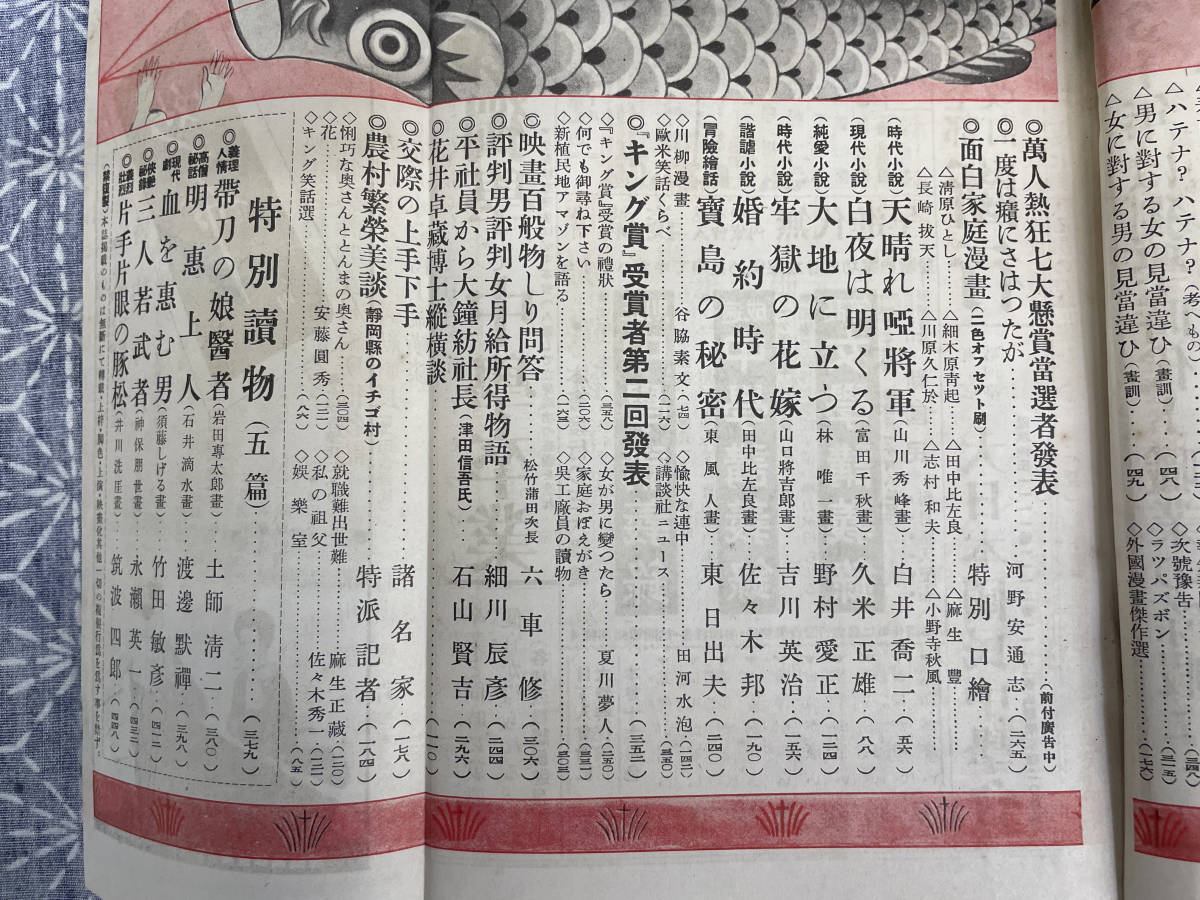 ハテナ？ハテナ？（考へもの）
△男に對する女の見當違ひ（畫訓）……（四八）
△女に對する男の見當違ひ（畫訓）……（四九）
◇次號豫告……（三四八）
◇ラッパズボン……（三一五）
◇外國漫畫傑作選……（一七六）
◎萬人熱狂七大懸賞當選者發表……（前付廣告中）
◎一度は癪にさはつたが……河野安通志……（二六五）
◎面白家庭漫畫（二色オフセット刷）……特別口繪
△清原ひとし……△細木原靑起……△田中比左良……△麻生豊……
△長崎拔天……△川原久仁於……△志村和夫……△小野寺秋風……
（時代小說）天晴れ啞將軍（山川秀峰畫）……白井喬二……（五六）
（現代小說）白夜は明くる（富田千秋畫）……久米正雄……（八八）
（純愛小說）大地に立つ（林唯一畫）……野村愛正……（一二四）
（時代小說）牢獄の花嫁（山口將吉郎畫）……吉川英治……（一五六）
（諧謔小說）婚約時代（田中比左良畫）……佐々木邦……（一九〇）
（冒險繪話）寶島の秘密（東風人畫）……東日出夫……（二四〇）
◇川柳漫畫……谷脇素文（七四）
◇愉快な連中……田河水泡（一四二）
◇歐米笑話くらべ……（一一六）
◇講談社ニュース……（三五〇）
◎『キング賞』受賞者第二回發表……（三五二）
◇『キング賞』受賞の禮狀……（三五八）
◇女が男に變つたら……夏川夢人（二五〇）
◇何でも御尋ね下さい……（二〇六）
◇家庭おぼえがき……（三三二）
◇新植民地アマゾンを語る……（一六三）
◇吳工廠員の讀物……（三〇三）
◎映畫百般物しり問答……松竹蒲田次長 六車修……（三〇六）
◎評判男評判女月給所得物語……細川辰彥……（二四四）
◎平社員から大鐘紡社長（津田信吾氏）……石山賢吉……（二九六）
◎花井卓藏博士縱橫談……（二一〇）
◎交際の上手下手……諸名家……（一七八）
◎農村繁榮美談（靜岡縣のイチゴ村）……特派記者……（一八四）
◇悧巧な奥さんととんまの奥さん……（三〇四）
◇就職難出世難……麻生正藏（一二〇）
◇花……安藤圓秀（三二）
◇私の祖父……佐々木秀一（一二二）
◇キング笑話選……（八六）
◇娛樂室……（八五）
特別讀物（五篇）……（三七九）
◎義理人情 帶刀の娘醫者（岩田專太郎畫）……土師淸二……（三八〇）
◎高僧秘話 明惠上人（石井滴水畫）……渡邊默禪……（三九八）
◎現代劇 血を惠む男（須藤しげる畫）……竹田敏彥……（四一二）
◎三人若武者（神保朋世畫）……永瀨英一……（四三二）
◎片手片眼の豚松（井川洗厓畫）……筑波四郎……（四四八）
（禁複製）本誌揭載のものは無斷にて轉載・上梓・脚色・上演・映畫化其他一切の複製行爲を爲す事を禁ず。